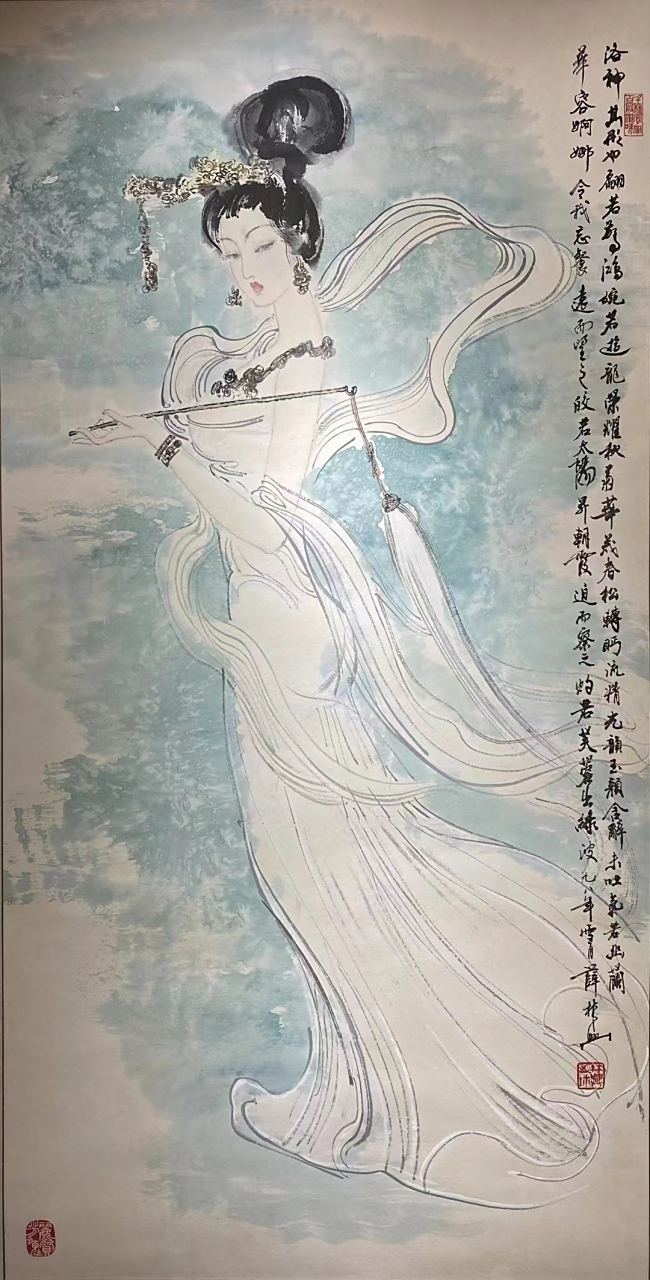 洛神 其形也翩若惊鸿婉若遊龍榮耀秋菊華茂春松轉眄流精光韻玉顏含辭未吐氣若幽蘭
華容婀娜令我忘餐遠而望之皎若太陽昇朝霞迫而察之灼若芙蓉出綠波九八年雪月薛林興